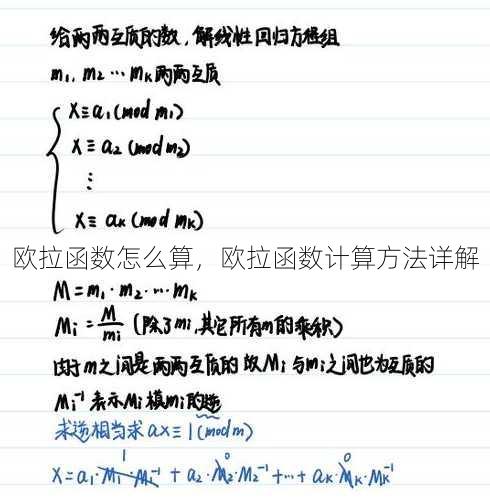 给两两互质的数,解线性回归方程组
m₁, m₂ … mₖ 两两互质
x≡a₁(mod m₁)
x≡a₂(mod m₂)
⋮
x≡aₖ(mod mₖ)
欧拉函数怎么算，欧拉函数计算方法详解
M=m₁·m₂·…mₖ
Mᵢ=M/mᵢ (除了mᵢ,其它所有m的乘积)
由于m之间是两两互质的 故Mᵢ与mᵢ之间也为互质的
Mᵢ⁻¹表示Mᵢ模mᵢ的逆
求逆相当求ax≡1(mod m)
1 0 0
x=a₁·M₁·M₁⁻¹+a₂·M₂·M₂⁻¹+…+aₖ·Mₖ·Mₖ⁻¹